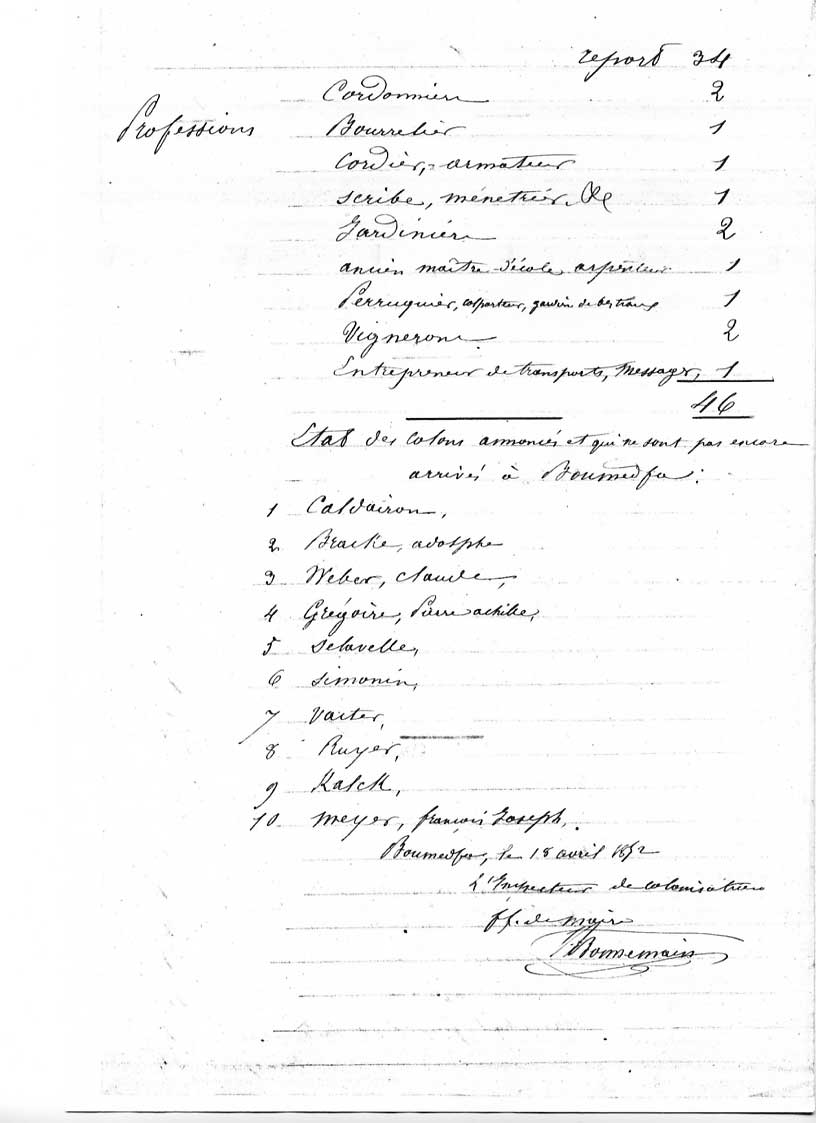 report 34
Cordonniers 2
Professions Bourrelier 1
Cordier, armateur 1
scribe, ménetrier, &c 1
Jardiniers 2
ancien maître d'école, arpenteur 1
Perruquier, colporteur, gardien de bestiaux 1
Vignerons 2
Entrepreneur de transports, Messager, 1
46
Etat des colons annoncés et qui ne sont pas encore
arrivés à Boumedfa :
1 Caldairon,
2 Bracke, adolphe
3 Weber, claude,
4 Grégoire, Pierre achille,
5 Delavelle,
6 Simonin,
7 Vaiter,
8 Ruyer,
9 Kalck,
10 Meyer, françois Joseph,
Boumedfa, le 18 avril 1852
L'Inspecteur de colonisation
ff. de Maire
Bonnemain